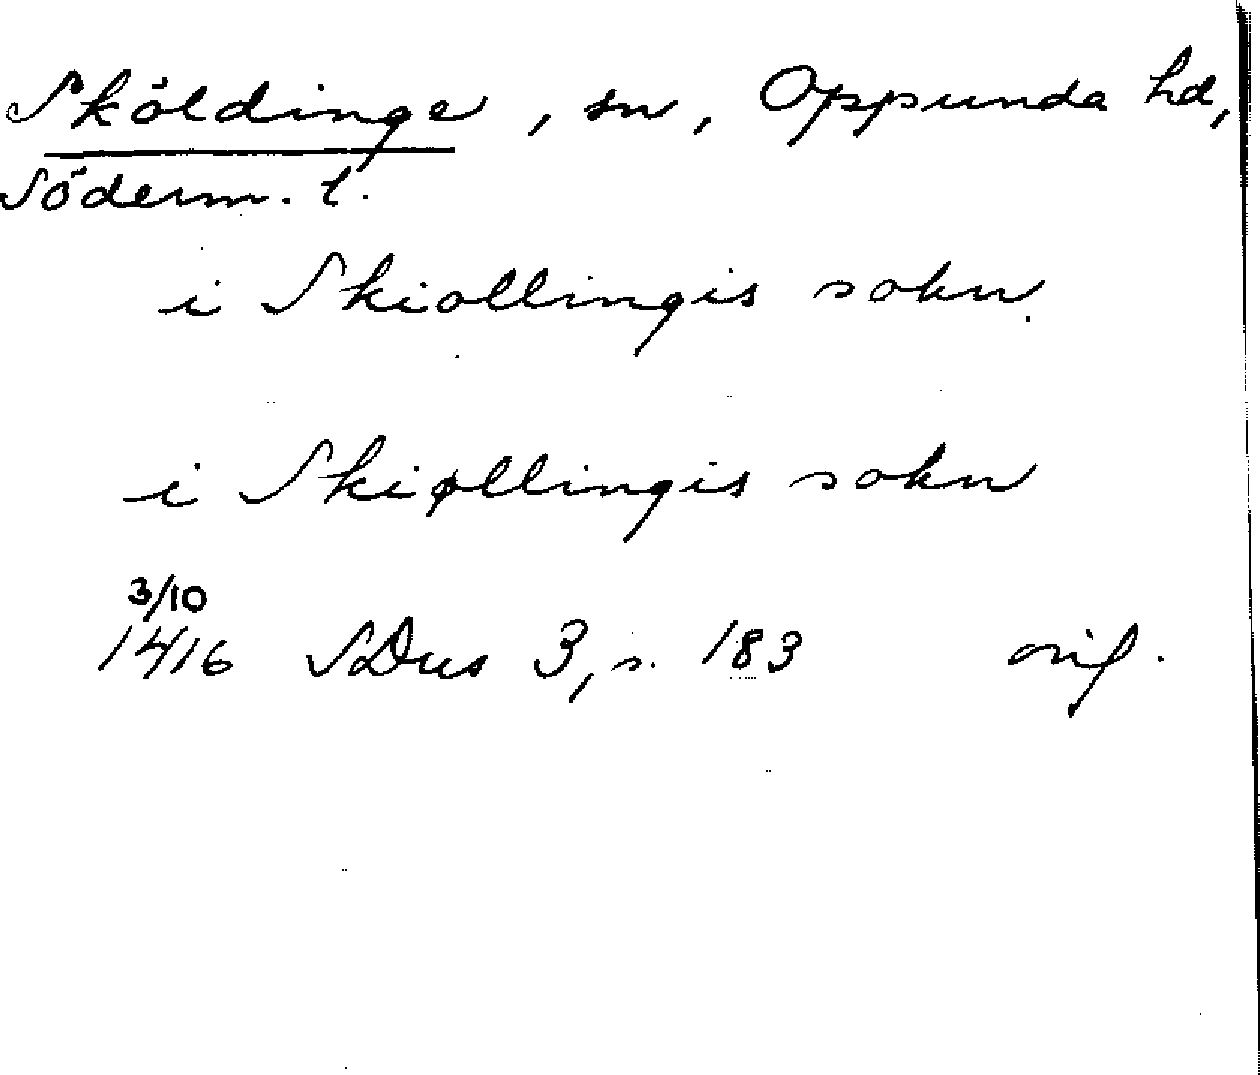 Sköldinge, sn, Oppunda hd,
Söderm. l.
i Skiollingis sokn
i Skiøllingis sokn
3/10
1416 SDns 3, s. 183 orig.